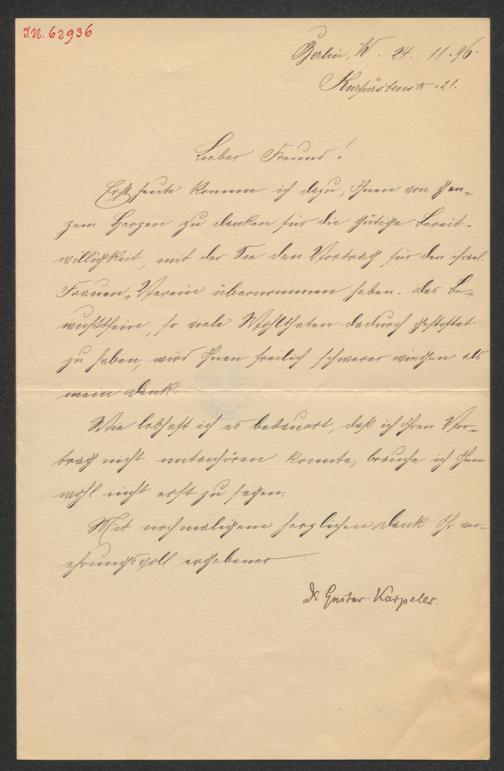 J.N. 62936
Berlin, W. 24. 11. 96.
Kurfürstenstr. 21.
Lieber Freund!
Erst heute komme ich dazu, Ihnen von gan-
zem Herzen zu danken für die gütige Bereit-
willigkeit, mit der Sie den Vortrag für den israel.
Frauen-Verein übernommen haben. Das Be-
wußtsein, so viele Wohlthaten dadurch gestiftet
zu haben, wird Ihnen freilich schwerer wiegen als
mein Dank.
Wie lebhaft ich es bedauert, daß ich Ihren Vor-
trag nicht mitanhören konnte, brauche ich Ihnen
wohl nicht erst zu sagen.
Mit nochmaligem herzlichen Dank Ihr ver-
ehrungsvoll ergebener
Dr Gustav Karpeles.